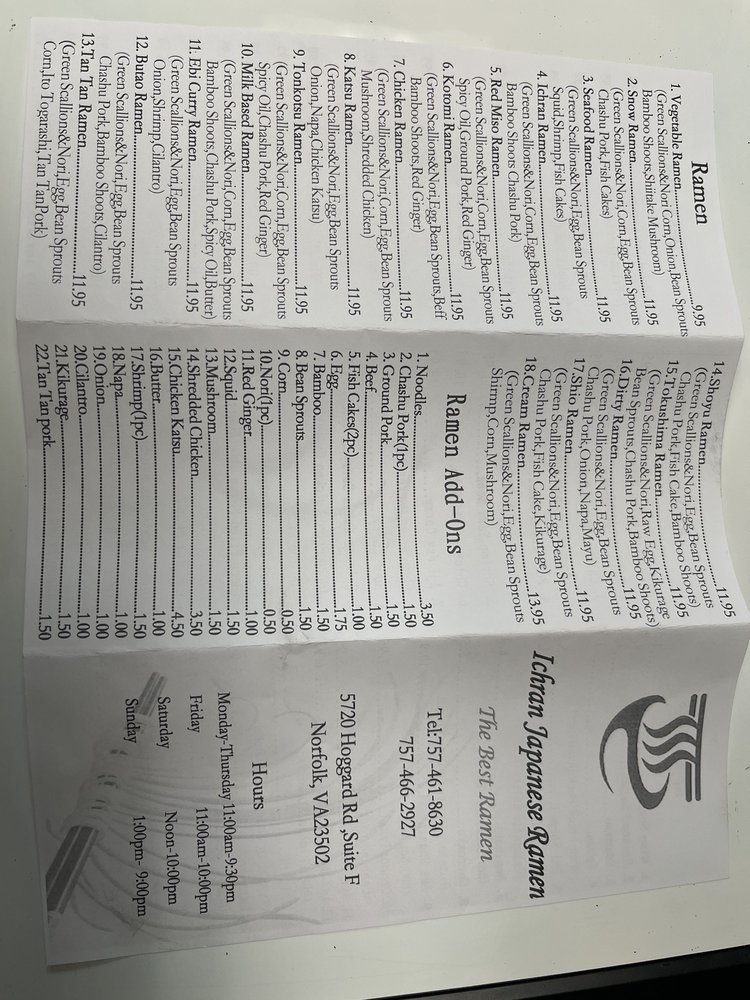 Ramen
1. Vegetable Ramen..........9.95
(Green Scallions&Nori Corn,Onion,Bean Sprouts
Bamboo Shoots,Shiitake Mushroom)
2. Snow Ramen..........11.95
(Green Scallions&Nori,Corn,Egg,Bean Sprouts
Chashu Pork,Fish Cakes)
3. Seafood Ramen..........11.95
(Green Scallions&Nori,Egg,Bean Sprouts
Squid,Shrimp,Fish Cakes)
4. Ichran Ramen..........11.95
(Green Scallions&Nori,Corn,Egg,Bean Sprouts
Bamboo Shoots Chashu Pork)
5. Red Miso Ramen..........11.95
(Green Scallions&Nori,Corn,Egg,Bean Sprouts
Spicy Oil,Ground Pork,Red Ginger)
6. Kotomi Ramen..........11.95
(Green Scallions&Nori,Egg,Bean Sprouts,Beff
Bamboo Shoots,Red Ginger)
7. Chicken Ramen..........11.95
(Green Scallions&Nori,Corn,Egg,Bean Sprouts
Mushroom,Shredded Chicken)
8. Katsu Ramen..........11.95
(Green Scallions&Nori,Egg,Bean Sprouts
Onion,Napa,Chicken Katsu
9. Tonkotsu Ramen..........11.95
(Green Scallions&Nori,Corn,Egg,Bean Sprouts
Spicy Oil,Chashu Pork,Red Ginger)
10. Milk Based Ramen..........11.95
(Green Scallions&Nori,Corn,Egg,Bean Sprouts
Bamboo Shoots,Chashu Pork,Spicy Oil,Butter)
11. Ebi Curry Ramen..........11.95
(Green Scallions&Nori,Egg,Bean Sprouts
Onion,Shrimp,Cilantro)
12. Butao Ramen..........11.95
(Green Scallions&Nori,Egg,Bean Sprouts
Chashu Pork,Bamboo Shoots,Cilantro)
13.Tan Tan Ramen..........11.95
(Green Scallions&Nori,Egg,Bean Sprouts
Corn,Ito Togarashi,Tan TanPork)
14.Shoyu Ramen..........11.95
(Green Scallions&Nori,Egg,Bean Sprouts
Chashu Pork,Fish Cake,Bamboo Shoots)
15.Tokushima Ramen..........11.95
(Green Scallions&Nori,Raw Egg,Kikurage
Bean Sprouts,Chashu Pork,Bamboo Shoots)
16.Dirty Ramen..........11.95
(Green Scallions&Nori,Egg,Bean Sprouts
Chashu Pork,Onion,Napa,Mayu)
17.Shio Ramen..........11.95
(Green Scallions&Nori,Egg,Bean Sprouts
Chashu Pork,Fish Cake,Kikurage)
18.Cream Ramen..........13.95
(Green Scallions&Nori,Egg,Bean Sprouts
Shirmp,Corn,Mushroom)
Ramen Add-Ons
1. Noodles..........3.50
2. Chashu Pork(1pc)..........1.50
3. Ground Pork..........1.50
4. Beef..........1.50
5. Fish Cakes(2pc)..........1.00
6. Egg..........1.75
7. Bamboo..........1.50
8. Bean Sprouts..........1.50
9. Corn..........0.50
10.Nori(1pc)..........0.50
11.Red Ginger..........1.00
12.Squid..........1.50
13.Mushroom..........1.50
14.Shredded Chicken..........3.50
15.Chicken Katsu..........4.50
16.Butter..........1.00
17.Shrimp(1pc)..........1.50
18.Napa..........1.00
19.Onion..........1.00
20.Cilantro..........1.00
21.Kikurage..........1.50
22.Tan Tan pork..........1.50
Ichran Japanese Ramen
The Best Ramen
Tel:757-461-8630
757-466-2927
5720 Hoggard Rd ,Suite F
Norfolk, VA23502
Hours
Monday-Thursday 11:00am-9:30pm
Friday 11:00am-10:00pm
Saturday Noon-10:00pm
Sunday 1:00pm- 9:00pm